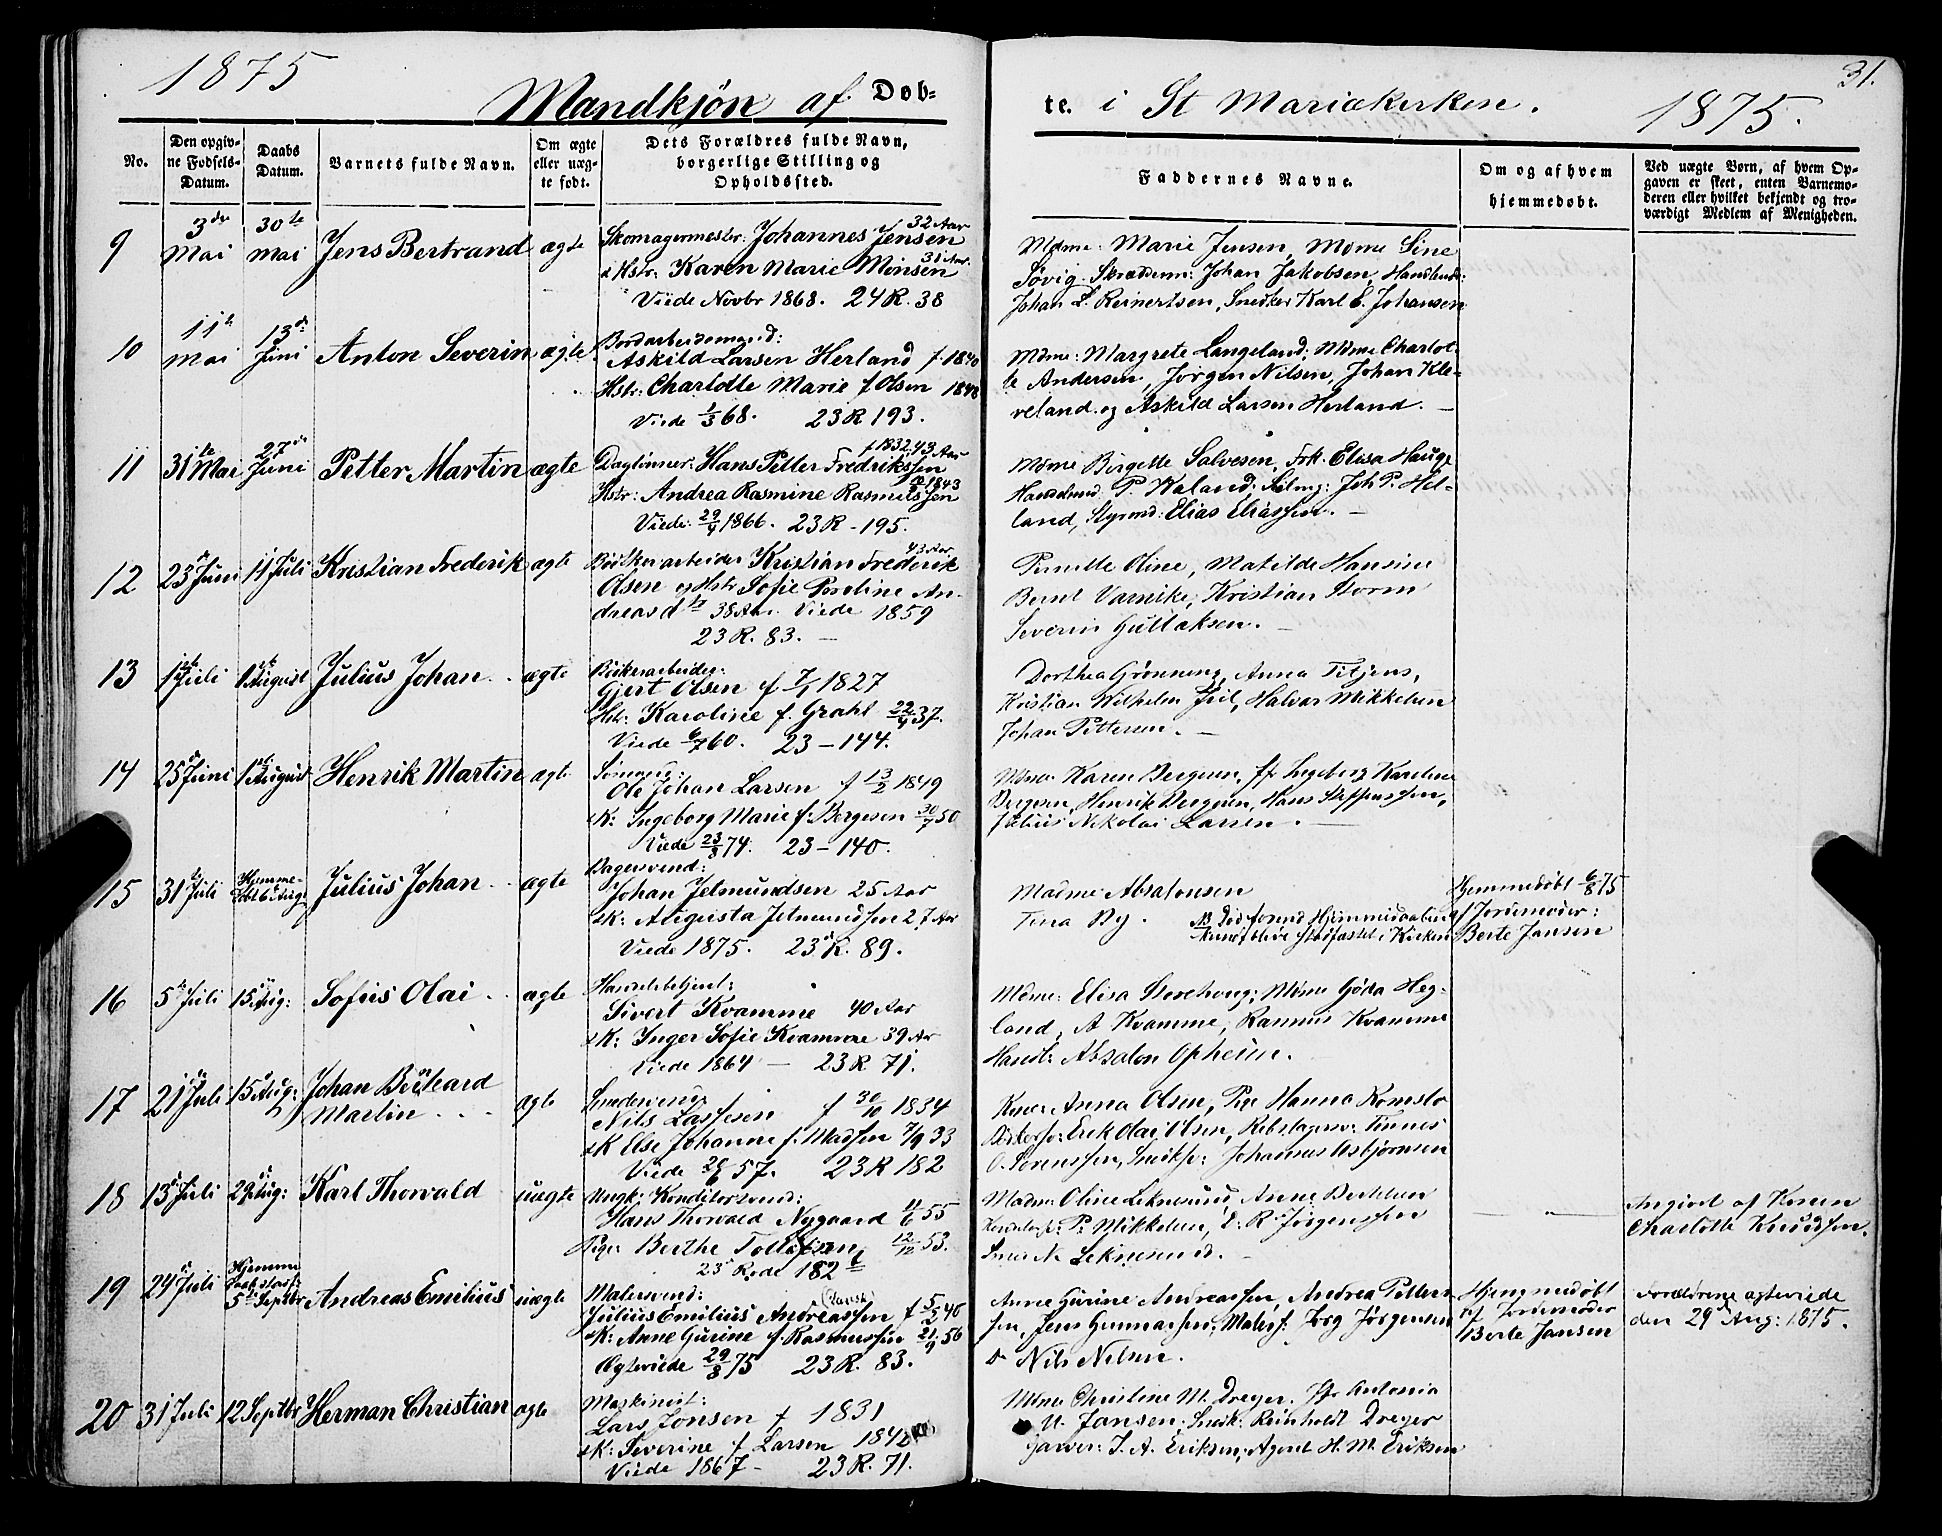 1875
Mandkjøn af Døb=
No.
Den opgiv-
ne Fødsels-
Datum.
Daabs
Datum.
Barnets fulde Navn.
Om ægte
eller uæg-
te født.
Dets Forældres fulde Navn,
borgerlige Stilling og
Opholdssted.
9
3die Mai
30te Mai
Jens Bertrand
ægte
32 Aar
Skomagermester: Johannes Jensen
31 Aar
& Hstr: Karen Marie Monsen
Viede Novbr 1868. 24 R. 38
10
11te Mai
13de Juni
Anton Severin
ægte
Bordarbeidsmand:
Askild Larsen Herland f. 1840
Hstr: Charlotte Marie f Olsen 1848
Viede 1/3 68. 23 R 193.
11
31te Mai
27de Juni
Petter Martin
ægte
f 1832 43 Aar
Daglønner: Hans Petter Fredriksen
f 1843
Hstr: Andrea Rasmine Rasmussen
Viede: 29/9 1866. 23 R - 195.
12
23d Juni
11 Juli
Kristian Frederik
ægte
43 Aar
Bødkerarbeider Kristian Frederik
Olsen og Hstr Sofie Paroline An-
dreasdtr 38 Aar. Viede 1859
23 R. 83. —
13
1ste Juli
1ste August
Julius Johan
ægte
Bødkerarbeider:
Gjert Olsen f 7/1 1827
Hstr: Karoline f. Grahl 22/9 37.
Viede 6/7 60. 23 — 144.
14
25 Juni
1ste August
Henrik Martin
ægte
Sømand:
Ole Johan Larsen f 13/2 1849
& K: Ingeborg Marie f: Bergesen 30/7 50
Viede 23/8 74. 23 — 140.
15
31 Juli
Hjemme-
døbt 6 Aug
Julius Johan
ægte
Bagersvend:
Johan Jelmundsen 25 Aar
& K: Augusta Jelmundsen 27 Aar
Viede 1875. 23d R. 89.
16
5 Juli
15 Aug:
Sofus Olai
ægte
Handelsbetjent:
Sivert Kvamme 40 Aar
& K: Inger Sofie Kvamme 39 Aar
Viede 1864 — 23 R. 71.
17
21 Juli
15 Aug:
Johan Berhard
Martin
ægte
Smedesvend:
Nils Lassesen f 30/10 1834
& K Else Johanne f. Madsen 7/9 33
Viede 26/6 57. 23 R 182
18
13 Juli
29 Aug:
Karl Thorvald
uægte
Ungk: Konditorsvend:
Hans Thorvald Nygaard 11/6 55
Pige: Berthe Tollefsen 12/12 53.
23d Rode 182 b
19
24 Juli
Hjemme
5te Septbr
Andreas Emilius
uægte
Malersvend: (dansk)
Julius Emilius Andreassen f 5/2 46
& K: Anne Gurine f. Rasmussen 21/9 56
Ægteviede 29/8 75 23 R. 83.
20
31 Juli
12 Septbr
Herman Christian
ægte
Maskinist:
Lars Jonsen f 1831
& K: Severine f Larsen 1842
Viede 1867 — 23 R. 71.
31.
te. i St Mariækirken. 1875.
Faddernes Navne.
Om og af hvem
hjemmedøbt.
Ved uægte Børn, af hvem Op-
gaven er skeet, enten Barnemo-
deren eller hvilket bekjendt og tro-
værdigt Medlem af Menigheden.
Mdme: Marie Jensen, Mdme Sine
Søvig, Skrædderm: Johan Jakobsen, Handlende:
Johan L. Reinertsen, Snedker Karl E. Johansen
Mdme: Margrete Langeland; Mdme Charlot-
te Andersen, Jørgen Nilsen, Johan Kle-
veland og Askild Larsen Herland. —
Mdme Birgette Salvesen, Frk. Elisa Hauge
Handlend. P. Waland: Joh P. Hel-
land, Styrmd: Elias Eliassen. —
Pernille Oline, Matilde Hansine
Bernt Varnike; Kristian Storm
Severin Gullaksen. —
Dorthea Grønning, Anna Titjens,
Kristian Wilhelm, Halvor Mikkelsen
Johan Pettersen. —
Mdme Karen Bergesen, Ingeborg Karoline
Bergesen, Henrik Bergesen, Hans Steffensen,
Julius Nikolai Larsen. —
Madme Absalonsen
Tina By.
NB Død forend Hjemmedaaben
kunde blive stadfæstet i Kirken
Hjemmedøbt 6/8 75
af Jordemoder:
Berte Jansen
Mdme: Elisa Storehoug; Mdme Gjøda Heg-
land, A Kvamme, Rasmus Kvamme
Handl: Absalon Opheim.
Kone Anna Olsen, Pige Hanna Romslo
Erik Olai Olsen, Rebslagersv: Tinnes
O. Sørenssen, Snedksv: Johannes Asbjørnsen
Madme Oline Leknesund, Anne Bertelsen
P. Mikkelsen, E. R. Jørgenssen
Smed N. Leknesund. —
Angivet af Konen
Charlotte Knudssen.
Anne Gurine Andreassen, Andrea Petter-
sen, Jens Gunnarsen, Malers: Jørg Jørgensen
& Nils Nilsen.
Hjemmedøbt
af Jordemoder
Berte Jansen
Forældrene ægteviede
den 29d Aug: 1875.
Mdme Christine M. Dreyer, Antonia
U. Jansen; Snedk: Reinholdt Dreyer
Garver: J. A. Eriksen, Agent H. M. Eriksen